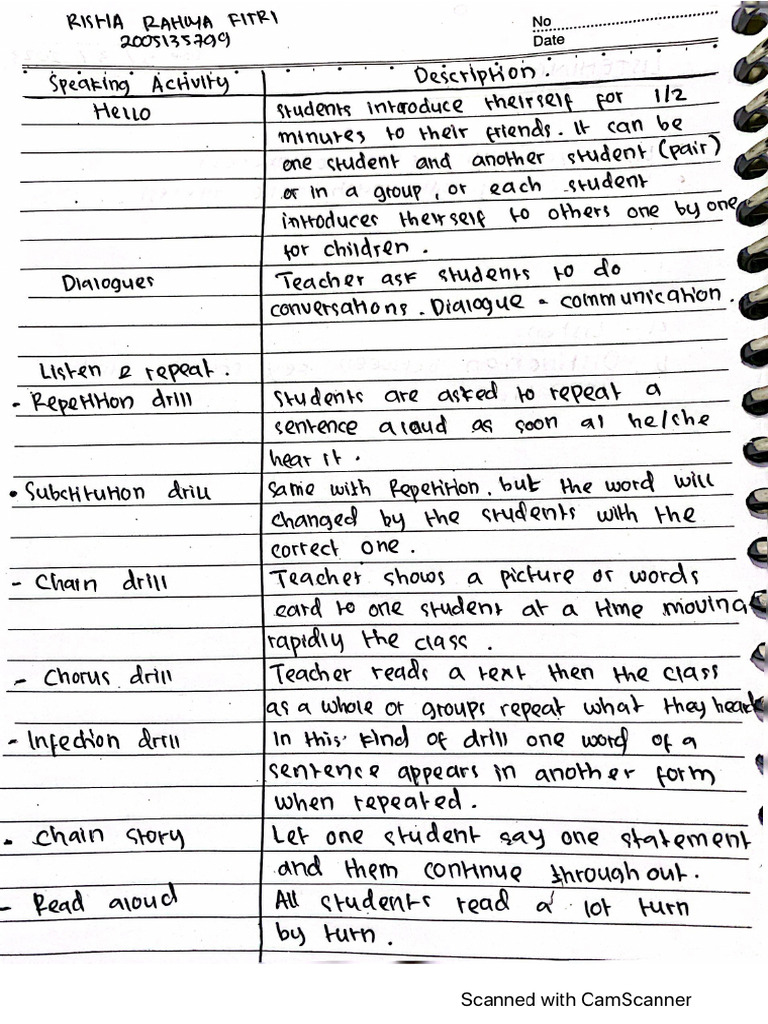 RISHA RAHMA FITRI
2005135799
No
Date
Speaking Activity Description
Hello students introduce theirself for 1/2
minutes to their friends. It can be
one student and another student (pair)
or in a group, or each student
introduces theirself to others one by one
for children.
Dialogues Teacher ask students to do
conversations. Dialogue - communication.
Listen & repeat.
- Repetition drill students are asked to repeat a
sentence aloud as soon as he/she
hear it.
• Substitution drill same with Repetition. but the word will
changed by the students with the
correct one.
- Chain drill Teacher shows a picture or words
card to one student at a time moving
rapidly the class.
- Chorus drill Teacher reads a text then the class
as a whole or groups repeat what they heard
- Infection drill In this kind of drill one word of a
sentence appears in another form
when repeated.
- Chain story Let one student say one statement
and them continue through out.
- Read aloud All students read a lot turn
by turn.
Scanned with CamScanner